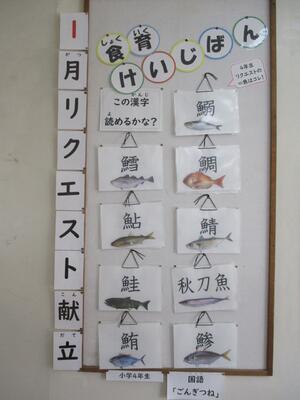 1月リクエスト献立
がつ
こん
だて
食育
しょく
いく
けいじばん
この漢字
かんじ
読めるかな？
よ
4年生
リクエストの
魚はコレ！
鰯
鱈
鯛
鮎
鯖
鮭
秋刀魚
鮪
鰺
小学4年生
国語
「ごんぎつね」